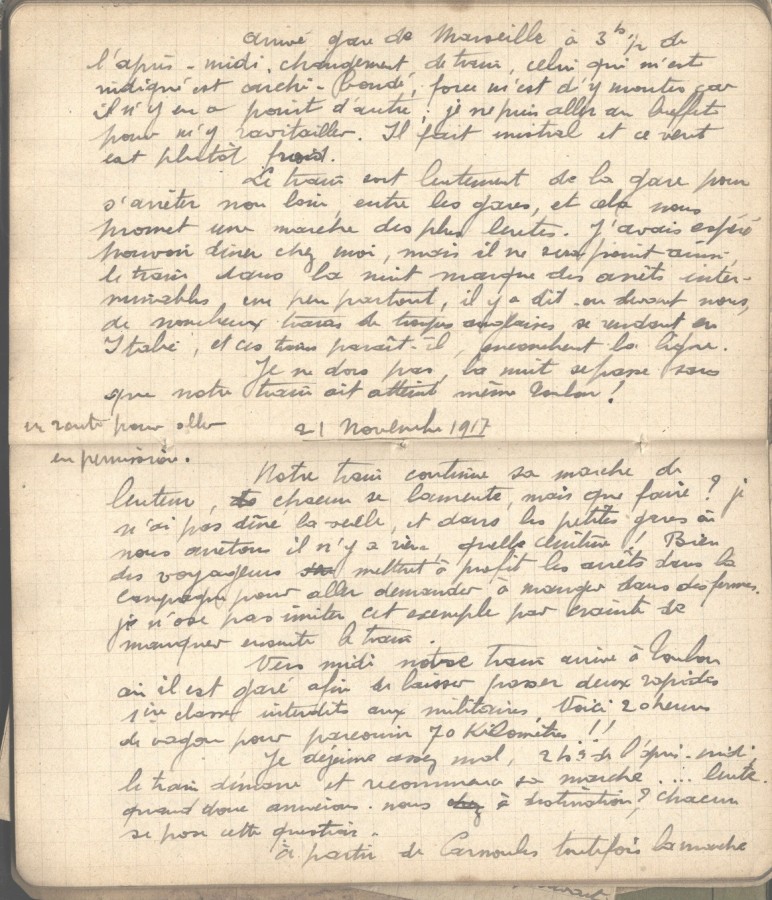 arrivé gare de Marseille à 3h 1/2 de
l'après-midi, changement de train, celui qui m'est
indiqué est archi-bondé, force m'est d'y monter car
il n'y en a point d'autre; je ne puis aller au buffet
pour m'y ravitailler. Il fait mistral et ce vent
est plutôt froid.
Le train sort lentement de la gare pour
s'arrêter non loin, entre les gares, et cela nous
promet une marche des plus lentes. J'avais espéré
pouvoir dîner chez moi, mais il ne sera point ainsi,
le train dans la nuit marque des arrêts inter-
minables un peu partout, il y a dit-on devant nous,
de nombreux trains de troupes anglaises se rendant en
Italie, et ces trains paraît-il, encombrent la ligne.
Je ne dors pas, la nuit se passe sans
que notre train ait atteint même Toulon!
en route pour aller
en permission.
21 Novembre 1917
Notre train continue sa marche de
lenteur, chacun se lamente, mais que faire? je
n'ai pas dîné la veille, et dans les petites gares où
nous arrêtons il n'y a rien, quelle! Bien
des voyageurs mettent à profit les arrêts dans la
campagne pour aller demander à manger dans des fermes.
je n'ose pas imiter cet exemple par crainte de
manquer ensuite le train.
Vers midi notre train arrive à Toulon
où il est garé afin de laisser passer deux rapides
1ère classe interdits aux militaires. Voici 20 heures
de wagon pour parcourir 70 Kilomètres!!
Je déjeune assez mal, 2h 3 de l'après-midi
le train démarre et recommence sa marche.... lente.
quand donc arriverons-nous à destination? chacun
se pose cette question.
à partir de Carnoules toutefois la marche